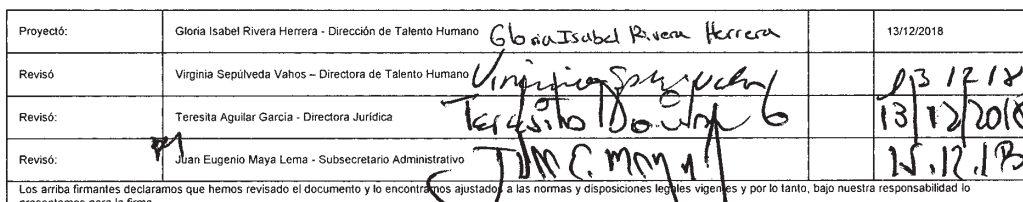 Proyectó: Gloria Isabel Rivera Herrera - Dirección de Talento Humano Gloria Isabel Rivera Herrera 13/12/2018
Revisó Virginia Sepúlveda Vahos – Directora de Talento Humano 13 12 18
Revisó: Teresita Aguilar García - Directora Jurídica 13/12/2018
Revisó: Juan Eugenio Maya Lema - Subsecretario Administrativo
Los arriba firmantes declaramos que hemos revisado el documento y lo encontramos ajustado a las normas y disposiciones legales vigentes y por lo tanto, bajo nuestra responsabilidad lo
presentamos para la firma